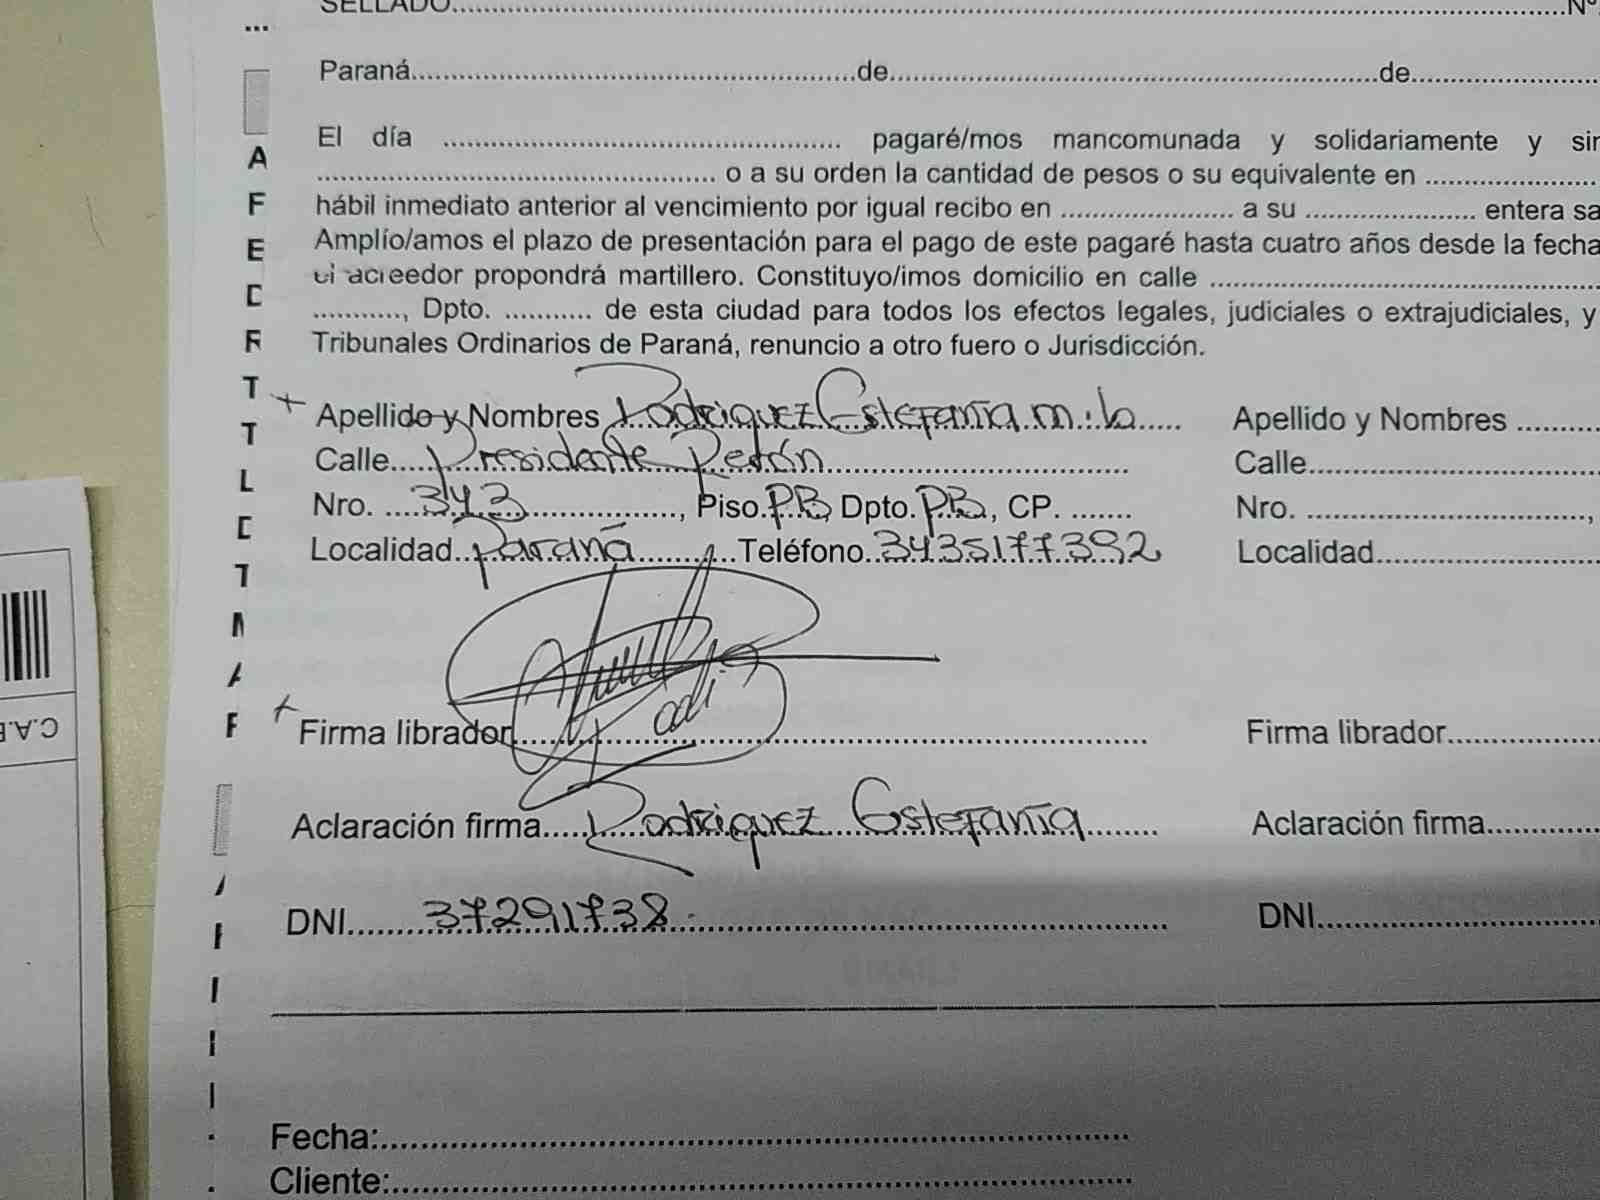 SELLADO..........Nº
...
Paraná..........de..........de..........
El día .......... pagaré/mos mancomunada y solidariamente y sin
.......... o a su orden la cantidad de pesos o su equivalente en ..........
hábil inmediato anterior al vencimiento por igual recibo en .......... a su .......... entera sa
Amplío/amos el plazo de presentación para el pago de este pagaré hasta cuatro años desde la fecha
el acreedor propondrá martillero. Constituyo/imos domicilio en calle ..........
.........., Dpto. .......... de esta ciudad para todos los efectos legales, judiciales o extrajudiciales, y
Tribunales Ordinarios de Paraná, renuncio a otro fuero o Jurisdicción.
+ Apellido y Nombres Rodriguez Estefanía m.b..... Apellido y Nombres ..........
Calle.....Presidente Perón.......... Calle..........
Nro. ....343.........., Piso.PB, Dpto.PB, CP. ....... Nro. ..........,
Localidad..Paraná..........Teléfono..3435177392 Localidad..........
+ Firma librador.......... Firma librador..........
Aclaración firma.....Rodriguez Estefanía.......... Aclaración firma..........
DNI..........37291738........... DNI..........
Fecha:..........
Cliente:..........
C.A.E